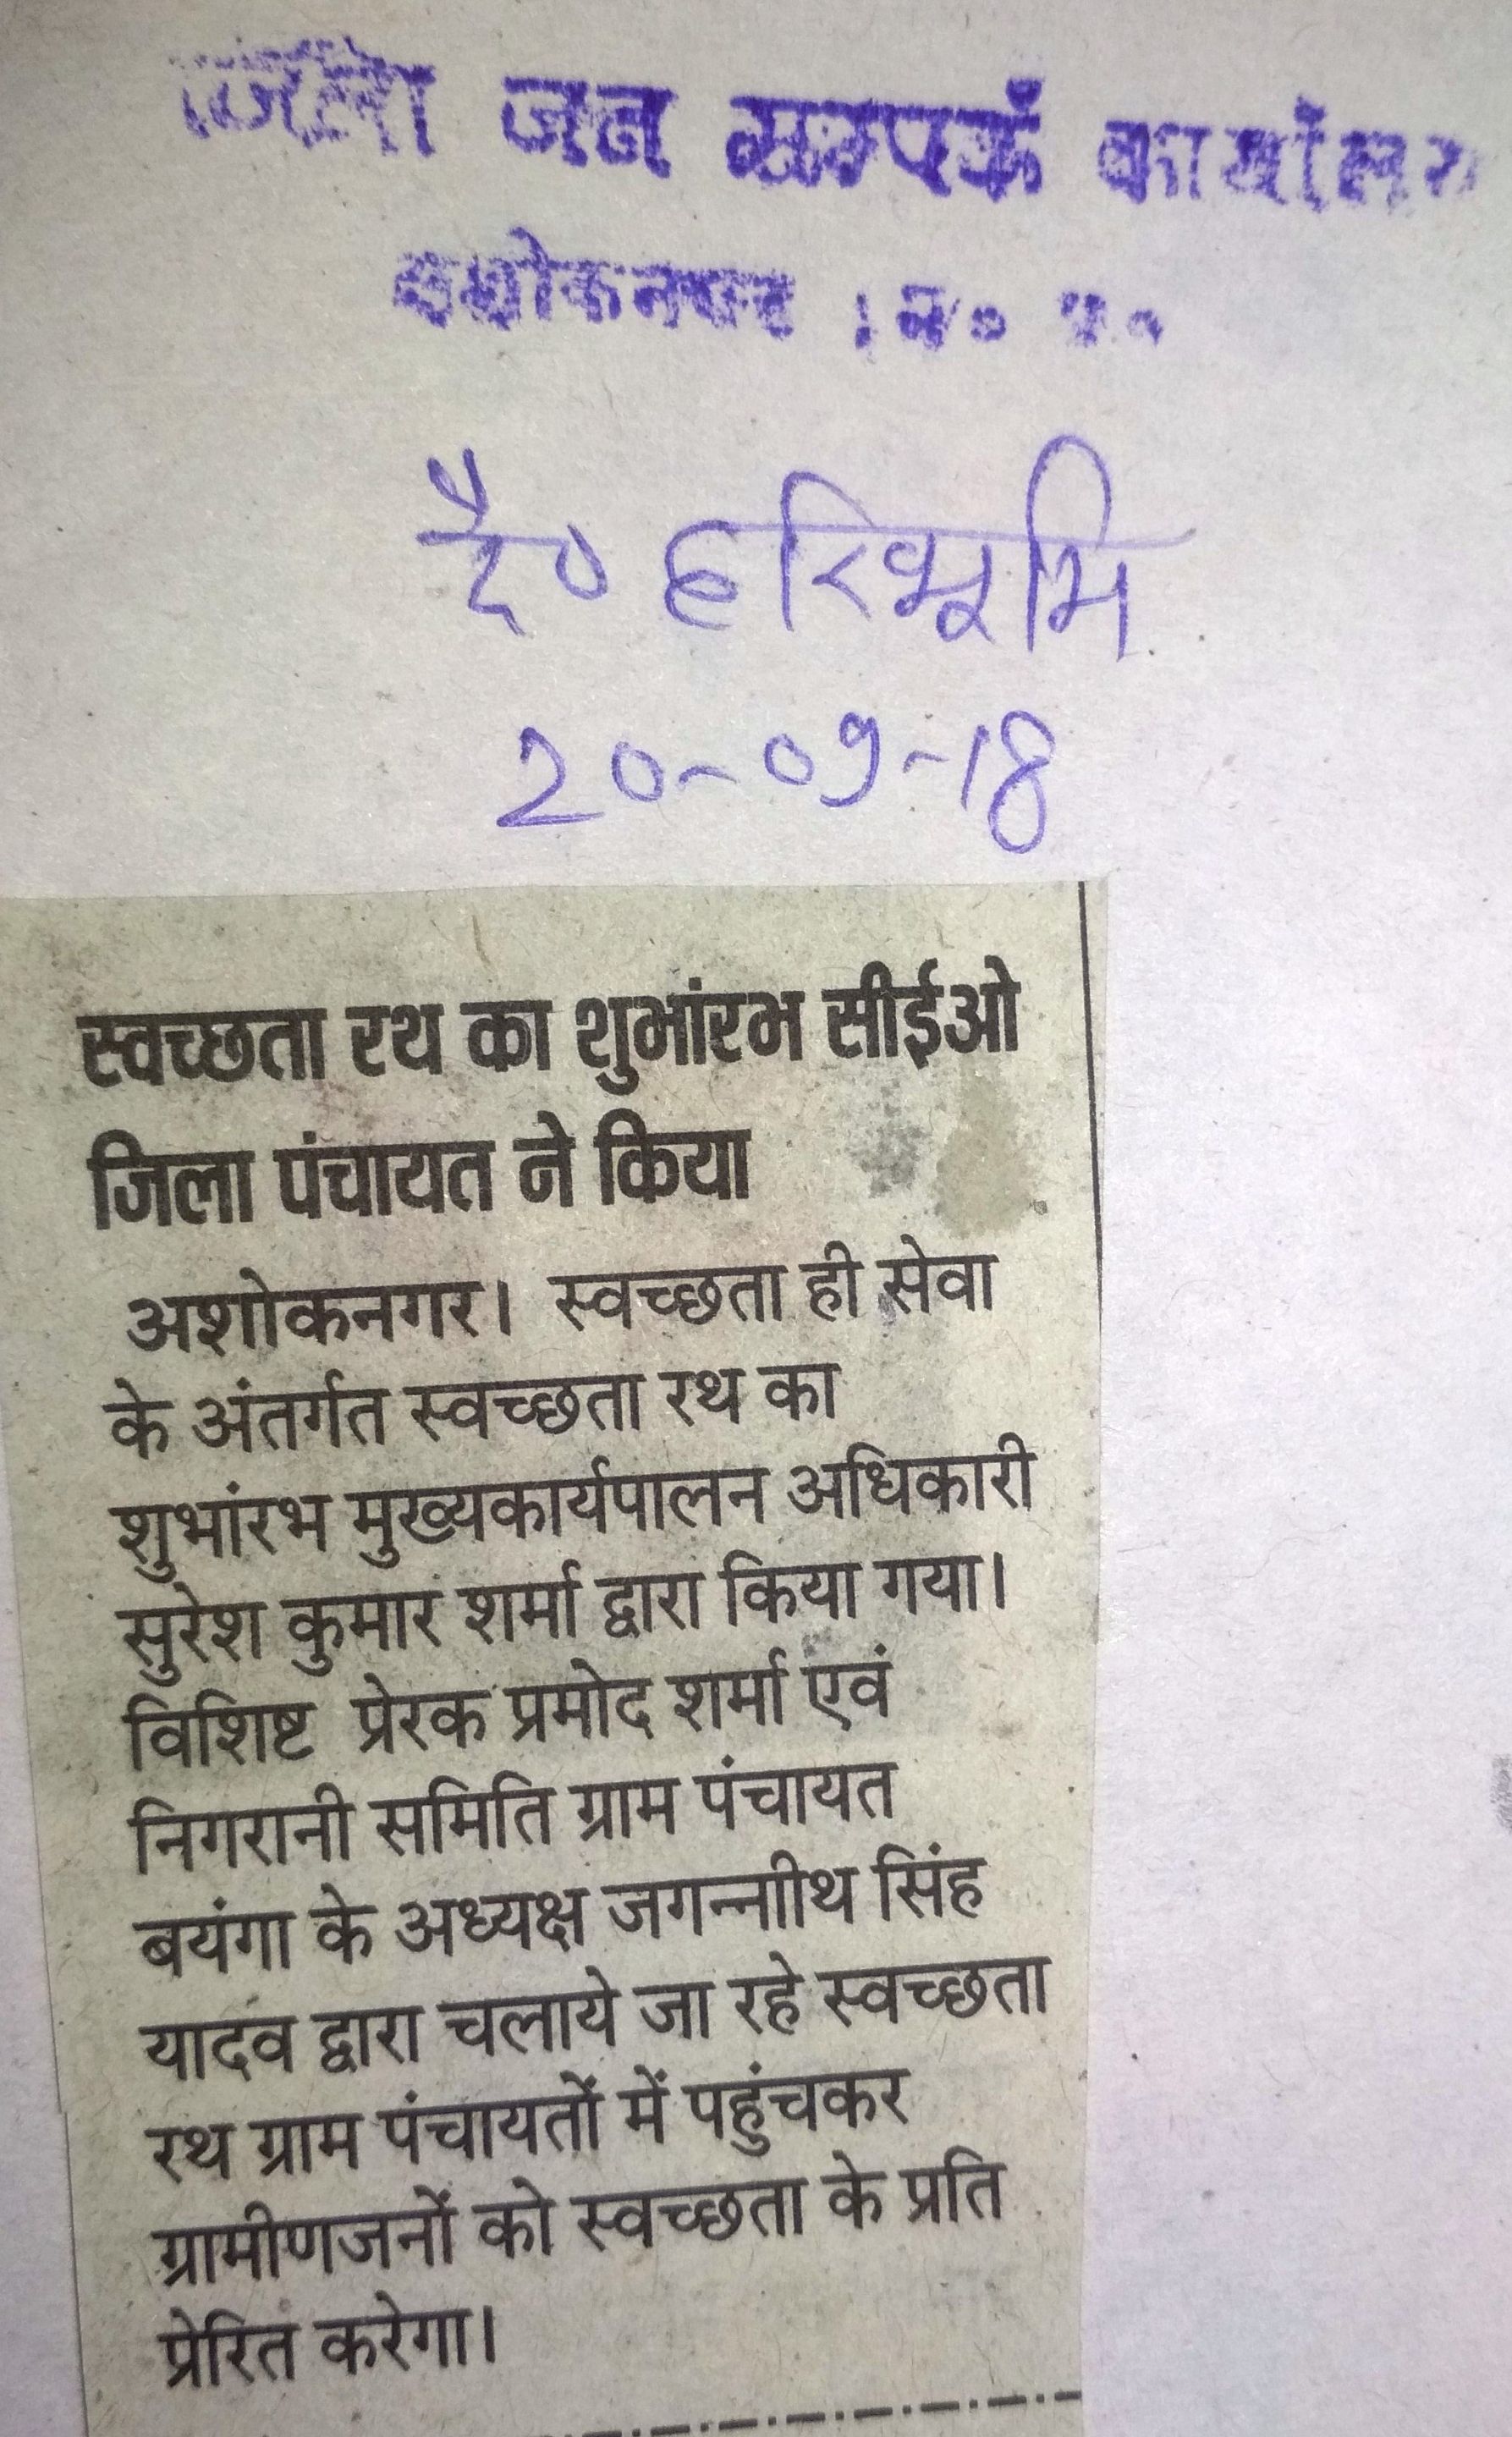 जिला जन सम्पर्क कार्यालय
अशोकनगर (म० प्र०
दै० हरिभूमि
20-09-18
स्वच्छता रथ का शुभांरभ सीईओ
जिला पंचायत ने किया
अशोकनगर। स्वच्छता ही सेवा
के अंतर्गत स्वच्छता रथ का
शुभांरभ मुख्यकार्यपालन अधिकारी
सुरेश कुमार शर्मा द्वारा किया गया।
विशिष्ट प्रेरक प्रमोद शर्मा एवं
निगरानी समिति ग्राम पंचायत
बयंगा के अध्यक्ष जगन्नाीथ सिंह
यादव द्वारा चलाये जा रहे स्वच्छता
रथ ग्राम पंचायतों में पहुंचकर
ग्रामीणजनों को स्वच्छता के प्रति
प्रेरित करेगा।